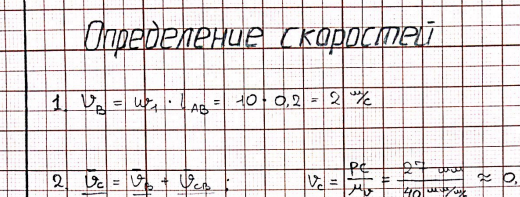 Определение скоростей
1. V_B = ω₁ · l_AB = 10 · 0,2 = 2 м/с
2. V̅_C = V̅_B + V̅_CB ; V_C = PC/μ_V = 27 мм/40 мм/м/с ≈ 0,